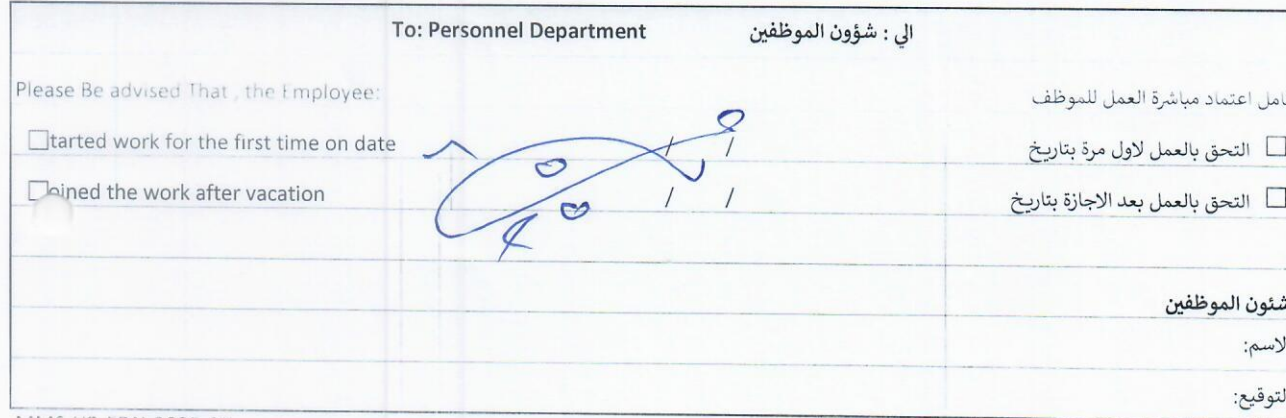 To: Personnel Department الي : شؤون الموظفين
Please Be advised That , the Employee: امل اعتماد مباشرة العمل للموظف
☐tarted work for the first time on date / / ☐ التحق بالعمل لاول مرة بتاريخ
☐oined the work after vacation / / ☐ التحق بالعمل بعد الاجازة بتاريخ
شئون الموظفين
لاسم:
لتوقيع: